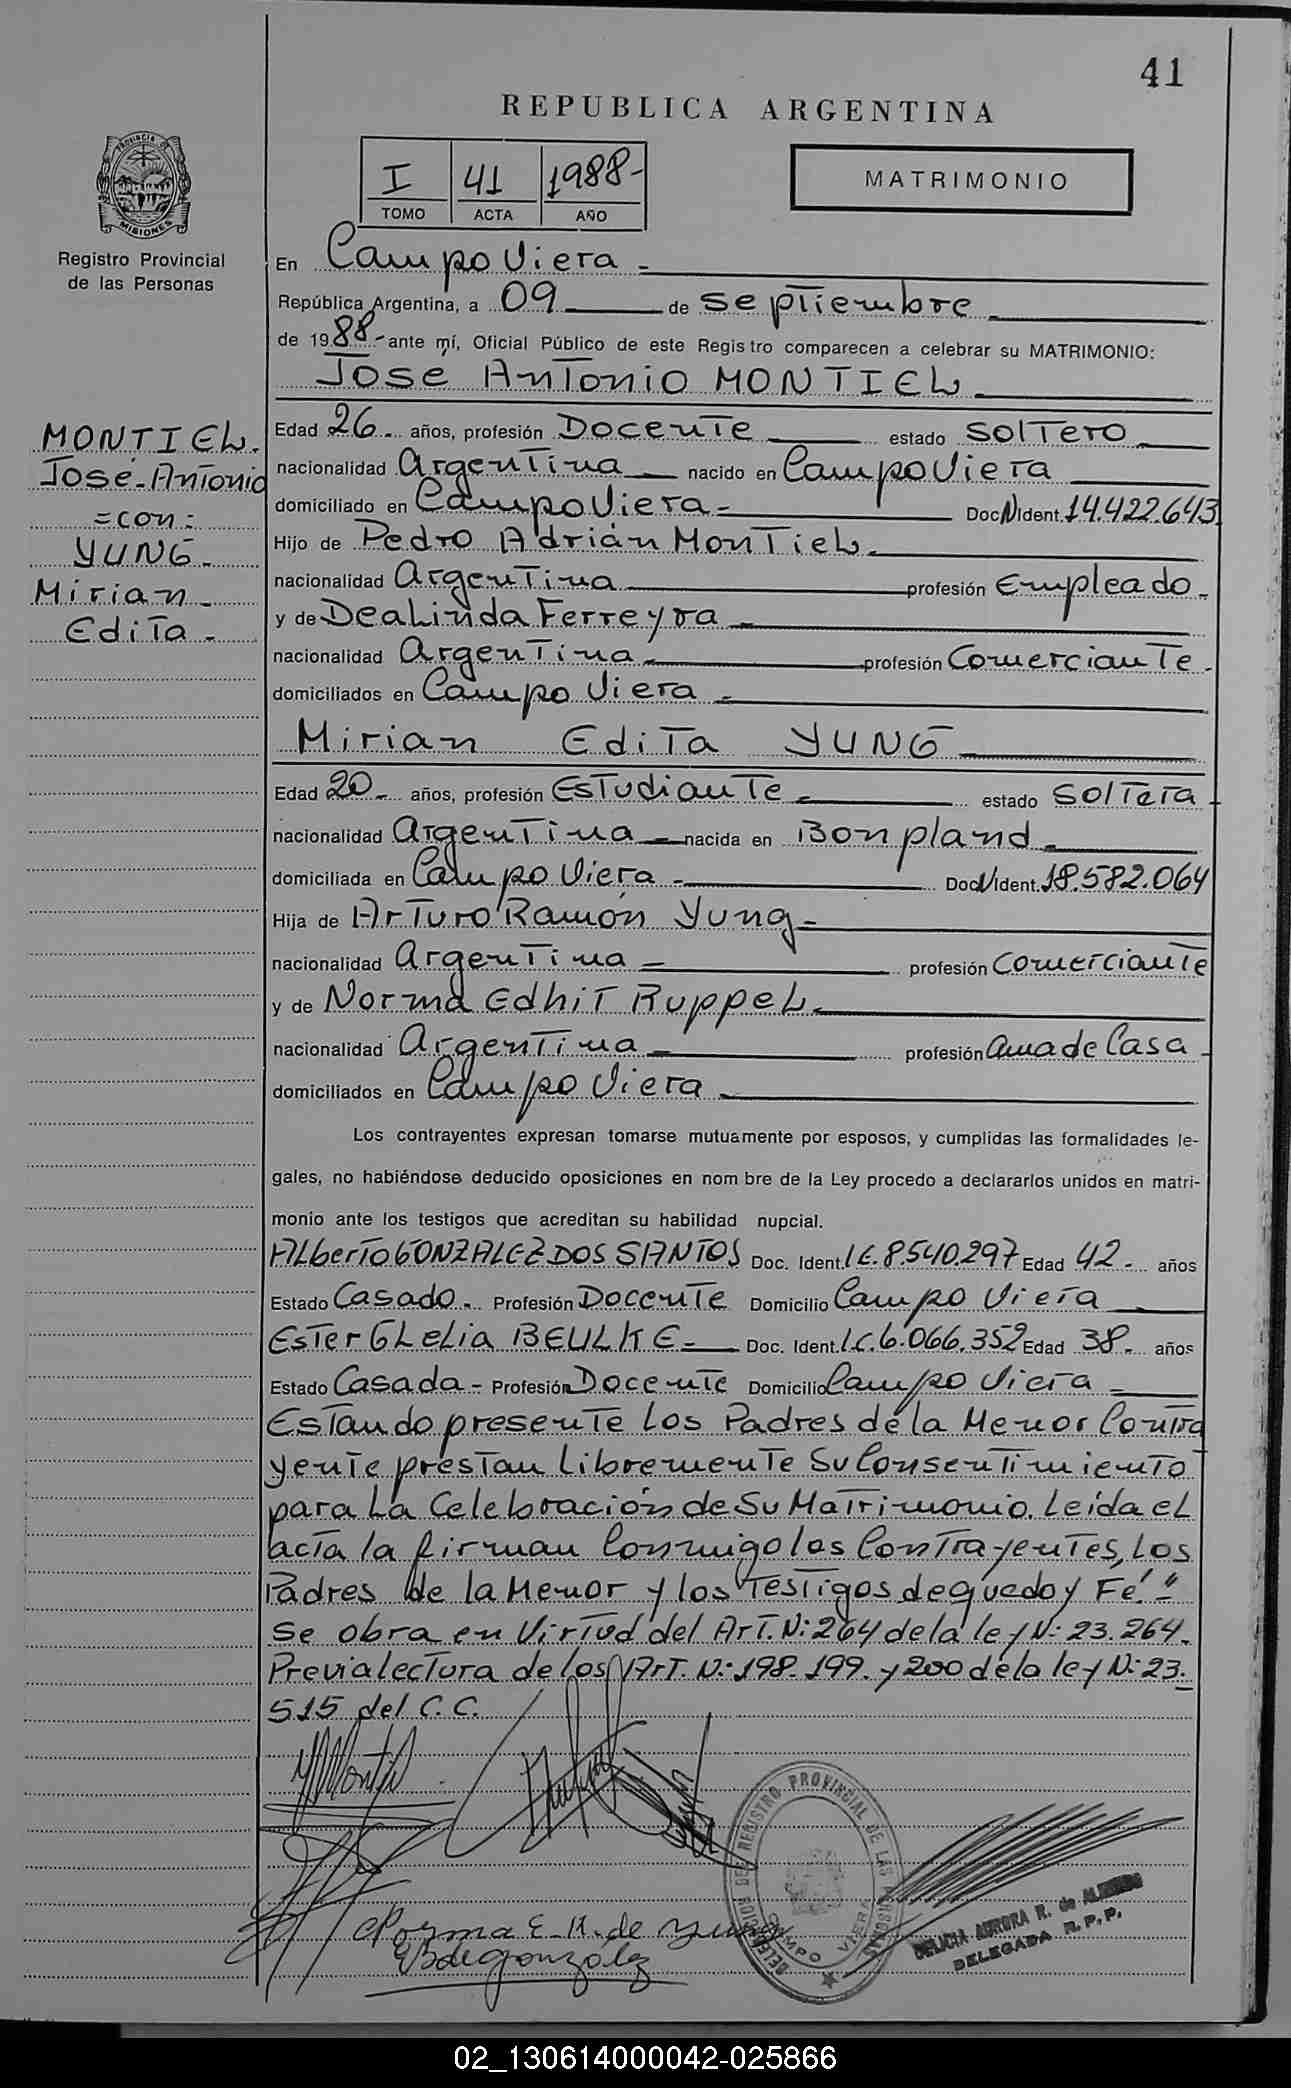 41
REPUBLICA ARGENTINA
PROVINCIA DE
MISIONES
Registro Provincial
de las Personas
I 41 1988-
TOMO ACTA AÑO
MATRIMONIO
En Campo Viera -
República Argentina, a 09 de septiembre
de 1988.- ante mí, Oficial Público de este Registro comparecen a celebrar su MATRIMONIO:
Jose Antonio MONTIEL
MONTIEL.
José Antonio
=con:
YUNG.
Mirian
Edita -
Edad 26 años, profesión Docente estado soltero
nacionalidad Argentina nacido en Campo Viera
domiciliado en Campo Viera - Doc N Ident. 14.422.643
Hijo de Pedro Adrián Montiel.
nacionalidad Argentina profesión Empleado -
y de Dealinda Ferreyra
nacionalidad Argentina profesión Comerciante -
domiciliados en Campo Viera -
Mirian Edita YUNG
Edad 20 - años, profesión Estudiante - estado soltera
nacionalidad Argentina nacida en Bonpland
domiciliada en Campo Viera - Doc N Ident. 18.582.064
Hija de Arturo Ramón Yung -
nacionalidad Argentina - profesión Comerciante
y de Norma Edhit Ruppel.
nacionalidad Argentina profesión ama de Casa
domiciliados en Campo Viera
Los contrayentes expresan tomarse mutuamente por esposos, y cumplidas las formalidades le-
gales, no habiéndose deducido oposiciones en nom bre de la Ley procedo a declararlos unidos en matri-
monio ante los testigos que acreditan su habilidad nupcial.
Alberto GONZALEZ DOS SANTOS Doc. Ident. 8.540.297 Edad 42 - años
Estado Casado. Profesión Docente Domicilio Campo Viera
Ester Clelia BEULKE - Doc. Ident. 6.066.352 Edad 38 - años
Estado Casada - Profesión Docente Domicilio Campo Viera -
Estando presente los Padres de la Menor Contra
yente prestan libremente Su Consentimiento
para la Celebración de Su Matrimonio. Leída el
acta la firman Conmigo los Contrayentes, los
Padres de la Menor y los Testigos de que doy Fé."
se obra en Virtud del Art. N: 264 de la ley N: 23.264.
Previa lectura de los Art. N: 198. 199. y 200 de la ley N: 23.
515 del C.C.
Norma E. R. de Yung
B de González
DELEGACION DEL REGISTRO PROVINCIAL DE LAS PERSONAS
CAMPO VIERA
DELICIA AURORA R. de ALMEIDA
DELEGADA R.P.P.
02_130614000042-025866